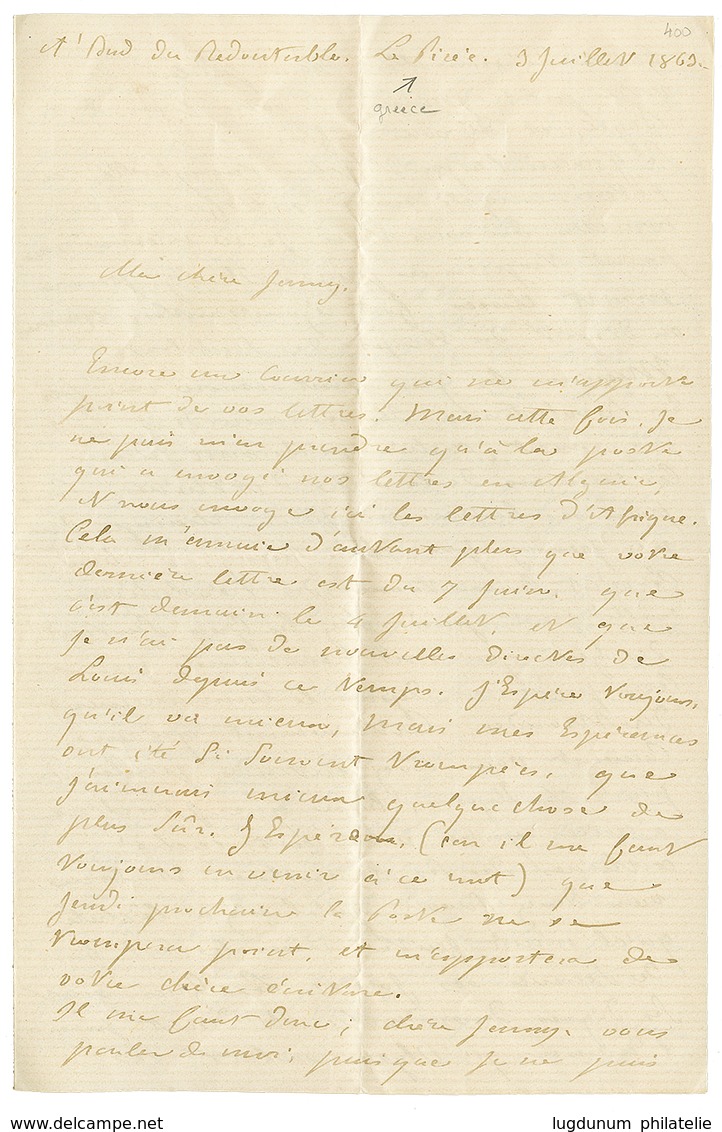 400
A' Bord du Redoutable. Le Pirée. 3 Juillet 1863.
greece
Ma chère Jenny.
Encore un Courrier qui ne m'apporte
point de vos lettres. Mais cette fois, je
ne puis m'en prendre qu'à la poste
qui a envoyé nos lettres en Algérie,
et nous envoye ici les lettres d'Afrique.
Cela m'ennuie d'autant plus que votre
dernière lettre est du 7 Juin, que
c'est demain le 4 Juillet, et que
je n'ai pas de nouvelles directes de
Louis depuis ce temps. J'Espère toujours,
qu'il va mieux, mais mes Espérances
ont été si souvent trompées, que
j'aimerais mieux quelque chose de
plus sûr. J'Espère, (car il me faut
toujours en venir à ce mot) que
Jeudi prochain la Poste ne se
trompera point, et m'apportera de
votre chère écriture.
Il me faut donc, chère Jenny, vous
parler de moi, puisque je ne puis
www.delcampe.net
lugdunum philatelie